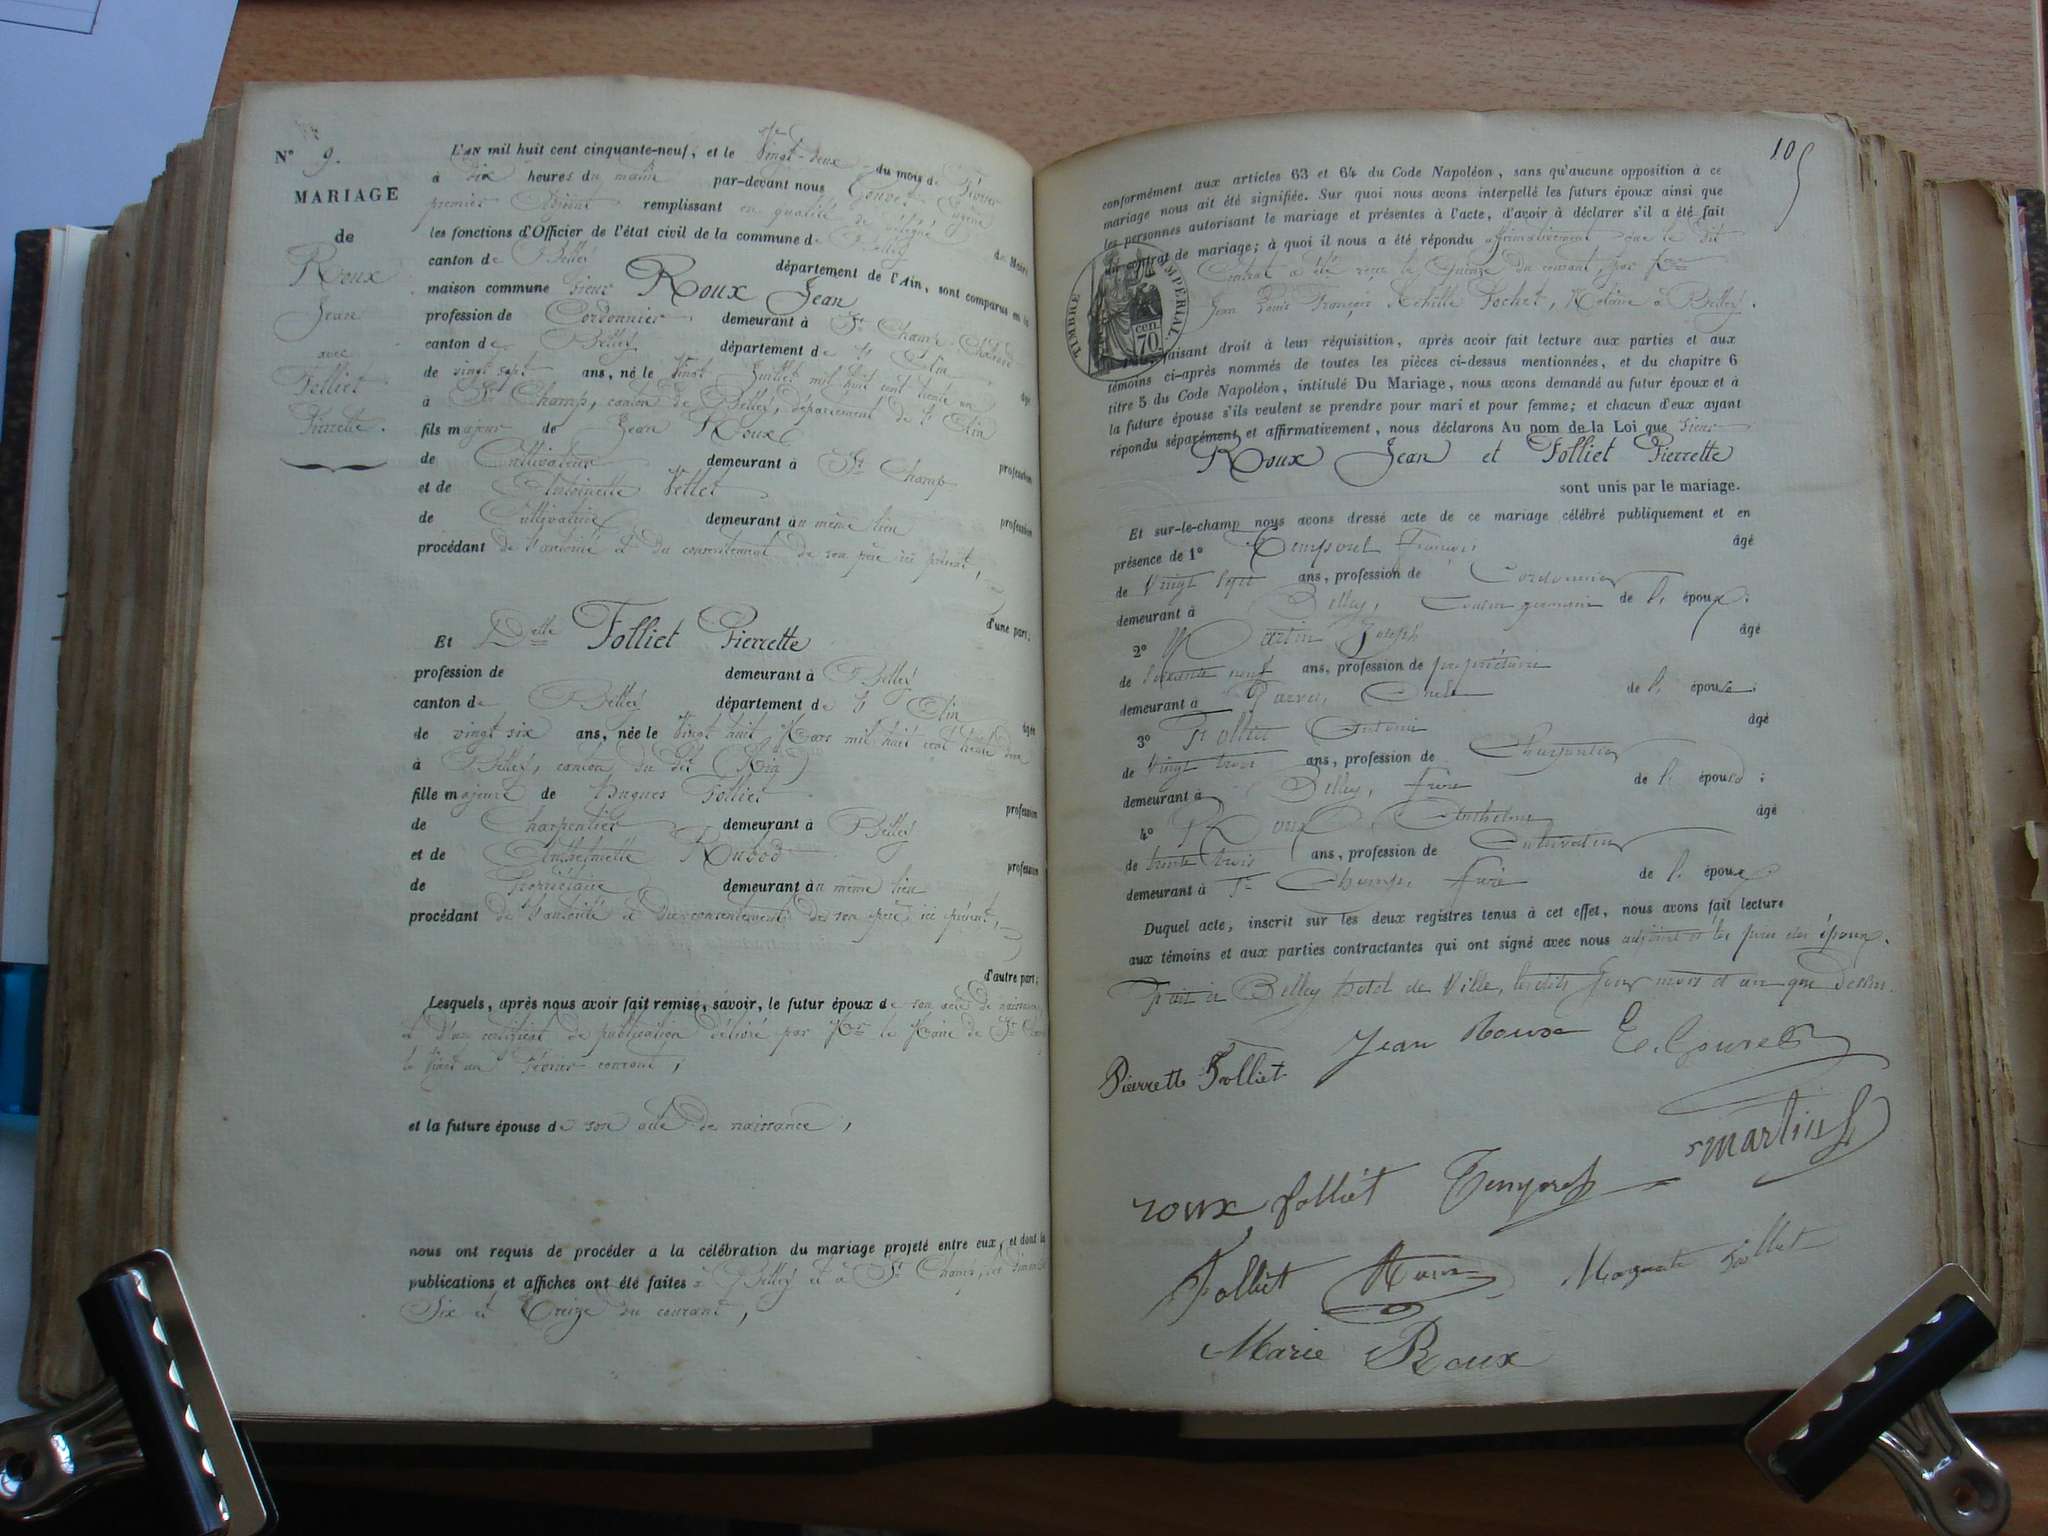 N° 9.
MARIAGE
de
Roux
Jean
avec
Folliet
Pierrette.
L'AN mil huit cent cinquante-neuf, et le Vingt-deux du mois de Février
à dix heures du matin par-devant nous Gouvet Eugène
premier Adjoint remplissant en qualité de délégué
les fonctions d'Officier de l'état civil de la commune de Belley
canton de Belley département de l'Ain, sont comparus en la
maison commune Sieur Roux Jean
profession de Cordonnier demeurant à St Champ
canton de Belley département de l'Ain âgé
de vingt sept ans, né le Vingt Juillet mil huit cent trente un
à St Champ, canton de Belley, département de l'Ain
fils majeur de Jean Roux profession
de Cultivateur demeurant à St Champ
et de Antoinette Vettet profession
de Cultivatrice demeurant au même lieu
procédant de l'autorité et du consentement de son père ici présent,
d'une part;
Et Delle Folliet Pierrette
profession de demeurant à Belley
canton de Belley département de l'Ain âgée
de vingt six ans, née le Vingt huit Mars mil huit cent trente deux
à Belley, canton du dit (Ain)
fille majeure de Hugues Folliet profession
de Charpentier demeurant à Belley
et de Anthelmette Rubod profession
de Propriétaire demeurant au même lieu
procédant de l'autorité et du consentement de son père ici présent,
d'autre part;
Lesquels, après nous avoir fait remise, savoir, le futur époux de son acte de naissance
et d'un certificat de publication délivré par Mr le Maire de St Champ
le Février courant,
et la future épouse de son acte de naissance,
nous ont requis de procéder a la célébration du mariage projeté entre eux, et dont la
publications et affiches ont été faites à Belley et à St Champ, les dimanches
Six et Treize du courant,
105
conformément aux articles 63 et 64 du Code Napoléon, sans qu'aucune opposition à ce
mariage nous ait été signifiée. Sur quoi nous avons interpellé les futurs époux ainsi que
les personnes autorisant le mariage et présentes à l'acte, d'avoir à déclarer s'il a été fait
un contrat de mariage; à quoi il nous a été répondu affirmativement que le dit
Contrat a été reçu le Quinze du courant, par Me
Jean Louis François Achille Rochet, Notaire à Belley.
TIMBRE IMPÉRIAL
70 cen.
faisant droit à leur réquisition, après avoir fait lecture aux parties et aux
témoins ci-après nommés de toutes les pièces ci-dessus mentionnées, et du chapitre 6
titre 5 du Code Napoléon, intitulé Du Mariage, nous avons demandé au futur époux et à
la future épouse s'ils veulent se prendre pour mari et pour femme; et chacun d'eux ayant
répondu séparément et affirmativement, nous déclarons Au nom de la Loi que Sieur
Roux Jean et Folliet Pierrette
sont unis par le mariage.
Et sur-le-champ nous avons dressé acte de ce mariage célébré publiquement et en
présence de 1° Temporel François âgé
de Vingt sept ans, profession de Cordonnier
demeurant à Belley, Cousin germain de l' époux.
2° Martin Joseph âgé
de Soixante neuf ans, profession de propriétaire
demeurant à Parves, Oncle de l' épouse;
3° Folliet Antoine âgé
de Vingt trois ans, profession de Charpentier
demeurant à Belley, frère de l' épouse;
4° Roux Anthelme âgé
de trente trois ans, profession de Cultivateur
demeurant à St Champ, frère de l' époux
Duquel acte, inscrit sur les deux registres tenus à cet effet, nous avons fait lecture
aux témoins et aux parties contractantes qui ont signé avec nous adjoint et les pères des époux.
Fait à Belley hôtel de Ville, lesdits jour mois et an que dessus.
Pierrette Folliet Jean Roux E. Gouvet
Martin
roux folliét Temporel
Folliet Roux Marguerite Folliet
Marie Roux